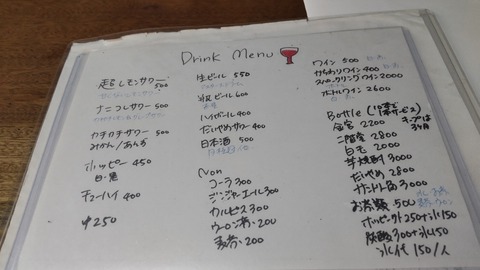 Drink Menu
超レモンサワー 500
ナニコレサワー 500
カチカチサワー 500
みかん/あんず
ホッピー 450
白・黒
チューハイ 400
中 250
生ビール 550
瓶ビール 600
ハイボール 400
だいやめサワー 400
日本酒 500
Non
コーラ 300
ジンジャーエール 300
カルピス 300
ウーロン茶 200
麦茶 200
ワイン 500
かちわりワイン 400
スパークリングワイン 2000
ボトルワイン 2600
Bottle
キープは
3ヶ月
金宮 2200
二階堂 2800
白モ 2000
芋焼酎 3000
だいやめ 2800
サントリー角 3000
お茶類 500
ホッピーセット 250+氷150
炭酸 300+氷150
氷代 150/人